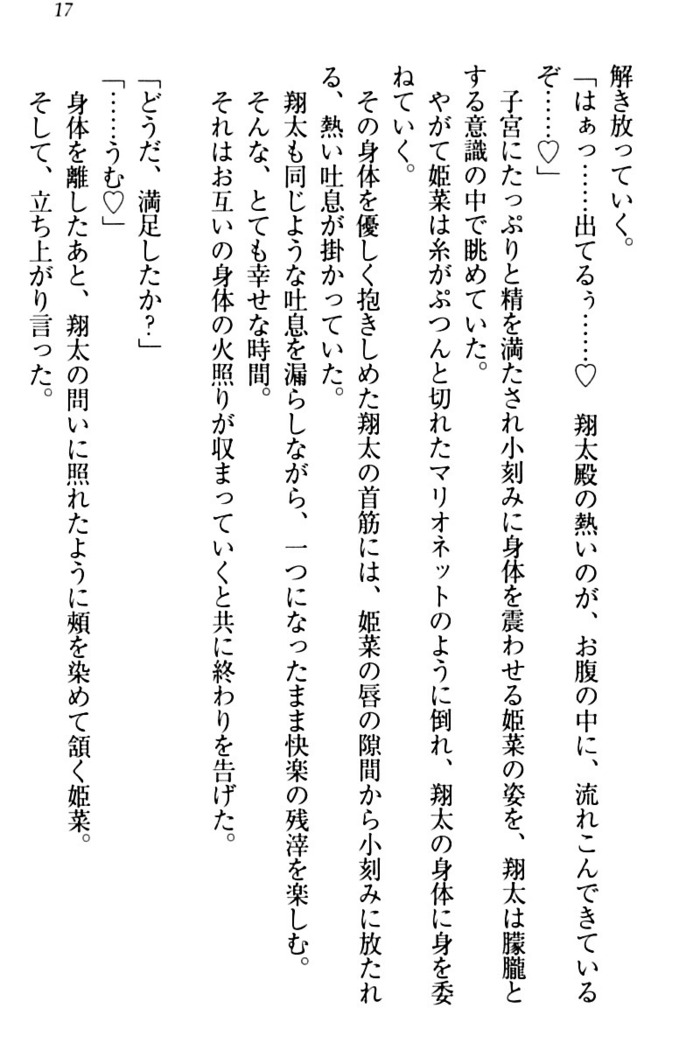 17
解き放っていく。
「はぁっ……出てるぅ……♡　翔太殿の熱いのが、お腹の中に、流れこんできている
ぞ……♡」
　子宮にたっぷりと精を満たされ小刻みに身体を震わせる姫菜の姿を、翔太は朦朧と
する意識の中で眺めていた。
　やがて姫菜は糸がぷつんと切れたマリオネットのように倒れ、翔太の身体に身を委
ねていく。
　その身体を優しく抱きしめた翔太の首筋には、姫菜の唇の隙間から小刻みに放たれ
る、熱い吐息が掛かっていた。
　翔太も同じような吐息を漏らしながら、一つになったまま快楽の残滓を楽しむ。
　そんな、とても幸せな時間。
　それはお互いの身体の火照りが収まっていくと共に終わりを告げた。
「どうだ、満足したか？」
「……うむ♡」
　身体を離したあと、翔太の問いに照れたように頰を染めて頷く姫菜。
　そして、立ち上がり言った。